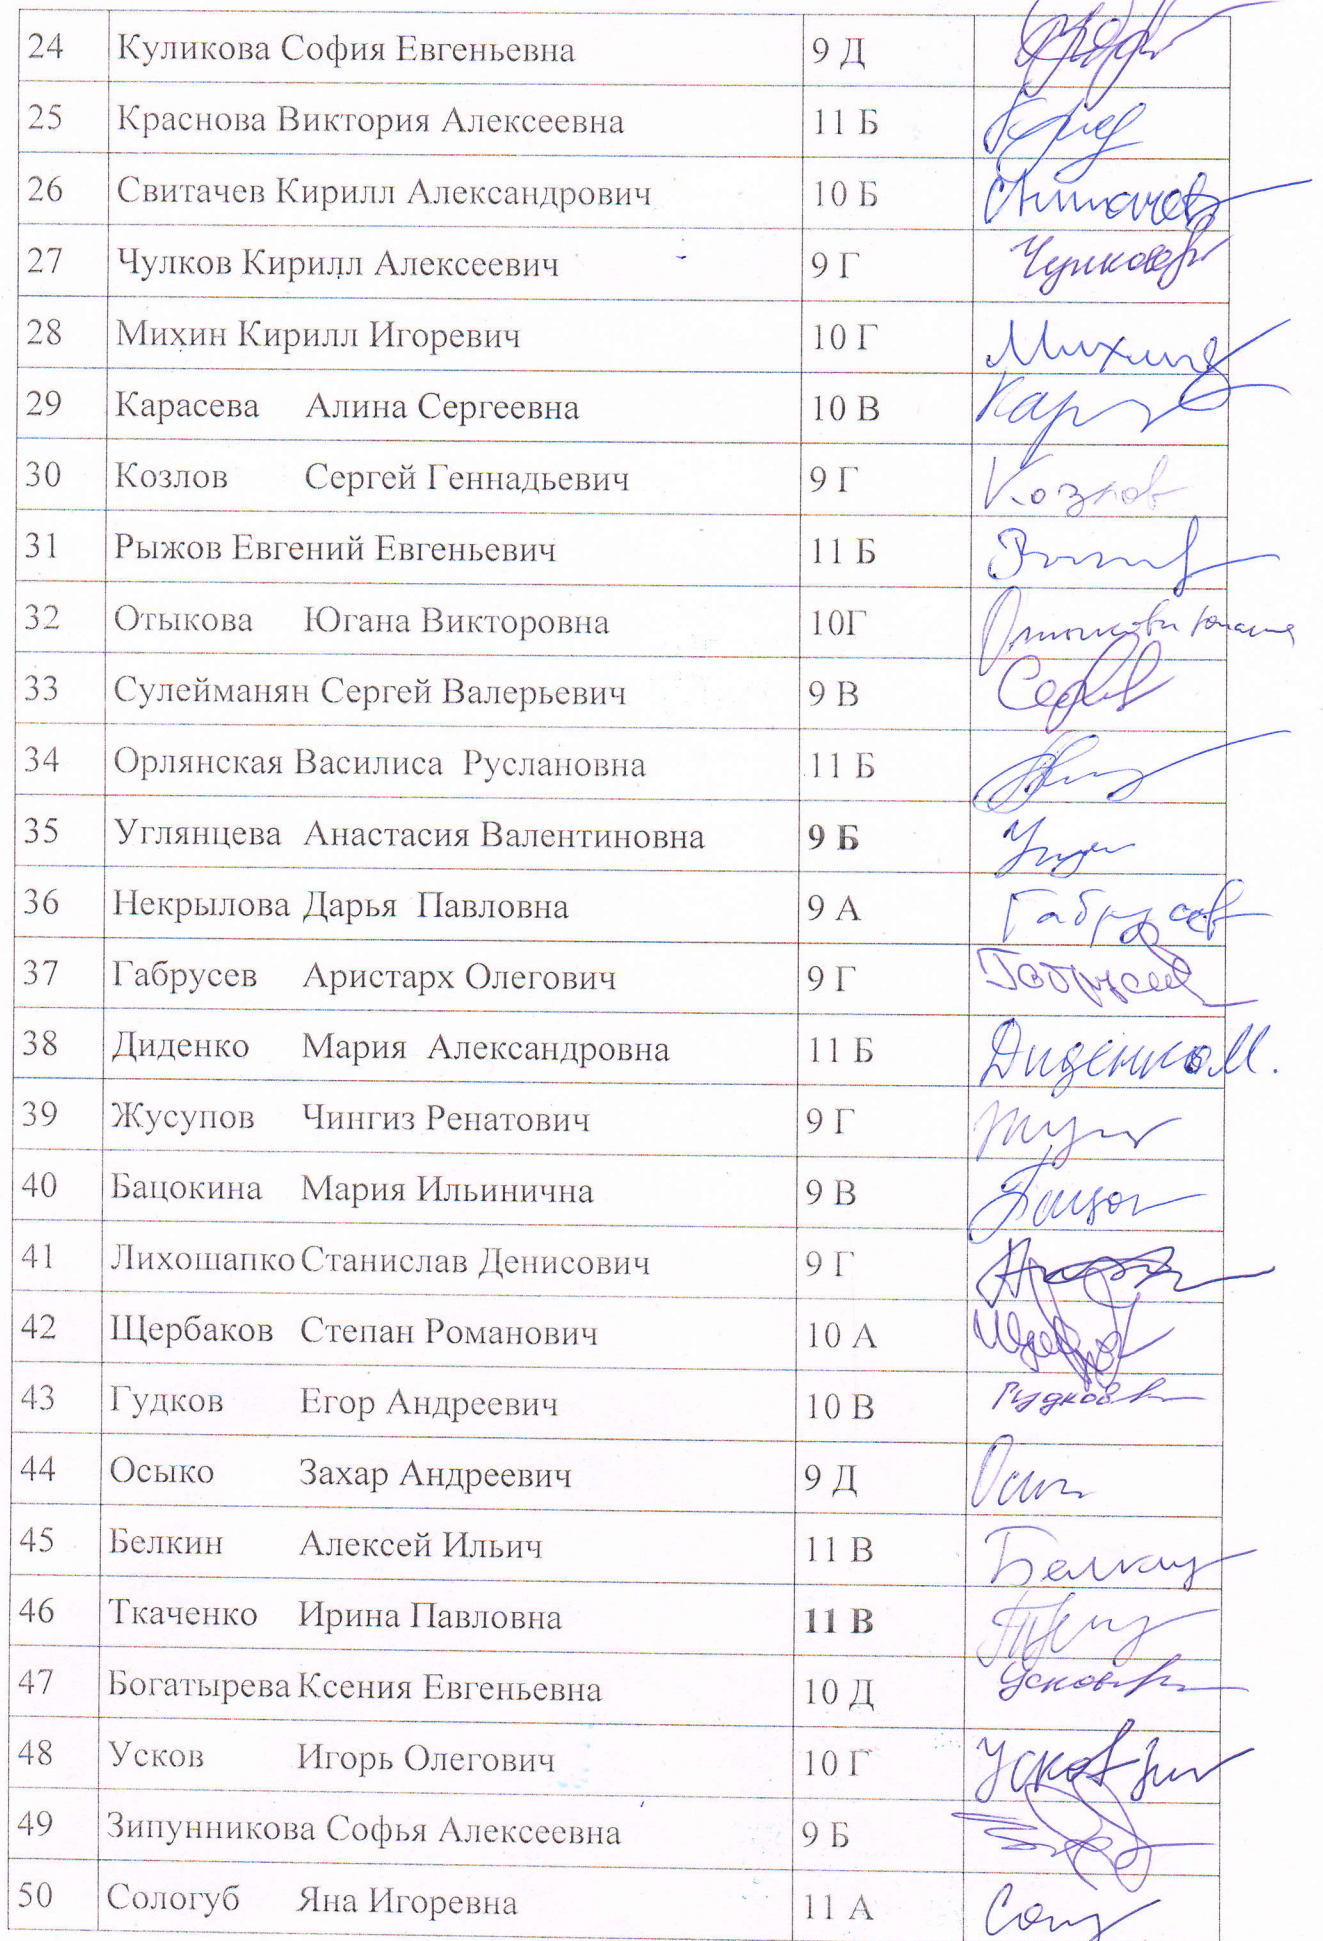 24 Куликова София Евгеньевна 9 Д
25 Краснова Виктория Алексеевна 11 Б
26 Свитачев Кирилл Александрович 10 Б
27 Чулков Кирилл Алексеевич 9 Г Чулков
28 Михин Кирилл Игоревич 10 Г Михин
29 Карасева Алина Сергеевна 10 В Кар
30 Козлов Сергей Геннадьевич 9 Г Козлов
31 Рыжов Евгений Евгеньевич 11 Б
32 Отыкова Югана Викторовна 10Г Отыкова Югана
33 Сулейманян Сергей Валерьевич 9 В
34 Орлянская Василиса Руслановна 11 Б
35 Углянцева Анастасия Валентиновна 9 Б
36 Некрылова Дарья Павловна 9 А Габрусев
37 Габрусев Аристарх Олегович 9 Г Габрусев
38 Диденко Мария Александровна 11 Б Диденко М.
39 Жусупов Чингиз Ренатович 9 Г
40 Бацокина Мария Ильинична 9 В
41 Лихошапко Станислав Денисович 9 Г
42 Щербаков Степан Романович 10 А
43 Гудков Егор Андреевич 10 В Гудков
44 Осыко Захар Андреевич 9 Д
45 Белкин Алексей Ильич 11 В Белкин
46 Ткаченко Ирина Павловна 11 В
47 Богатырева Ксения Евгеньевна 10 Д Усков
48 Усков Игорь Олегович 10 Г Усков
49 Зипунникова Софья Алексеевна 9 Б
50 Сологуб Яна Игоревна 11 А